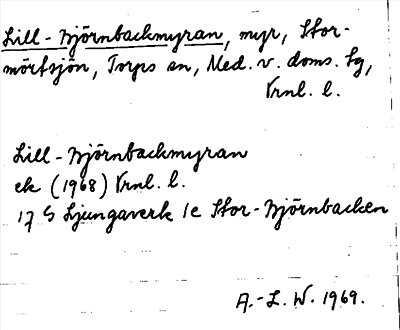 Lill-Björnbackmyran, myr, Stor-
mörtsjön, Torps sn, Med. v. doms. tg,
Vrnl. l.
Lill-Björnbackmyran
ek (1968) Vrnl. l.
17 G Ljungaverk 1c Stor-Björnbacken
A.-L. W. 1969.